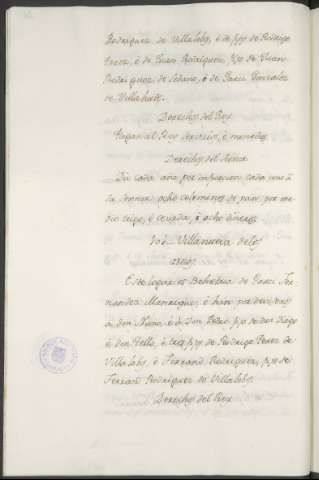 Rodriguez de Villalobos, é de fijos de Rodrigo
Perez, é de Juan Rodriguez, fijo de Juan
Rodriguez de Sedano, é de Garci Gonzalez
de Villahute.
Derechos del Rey
Pagan al Rey servicios, é monedas
Derechos del Señor
Dá cada año por infurcion cada uno á
la Señora ocho celemines de pan por me-
dio trigo, é cevada, é ocho dineros
Villanueva de los
Este logar es Behetria de Garci Fer-
nandez Manrrique, é han por divi
á don Nuño, é á Don Pedro fijo de don Diego
é don Tello, é tres fijos de Rodrigo Perez de
Villalobos, é Ferrand Rodriguez, fijo de
Ferrand Rodriguez de Villalobos
Derechos del Rey